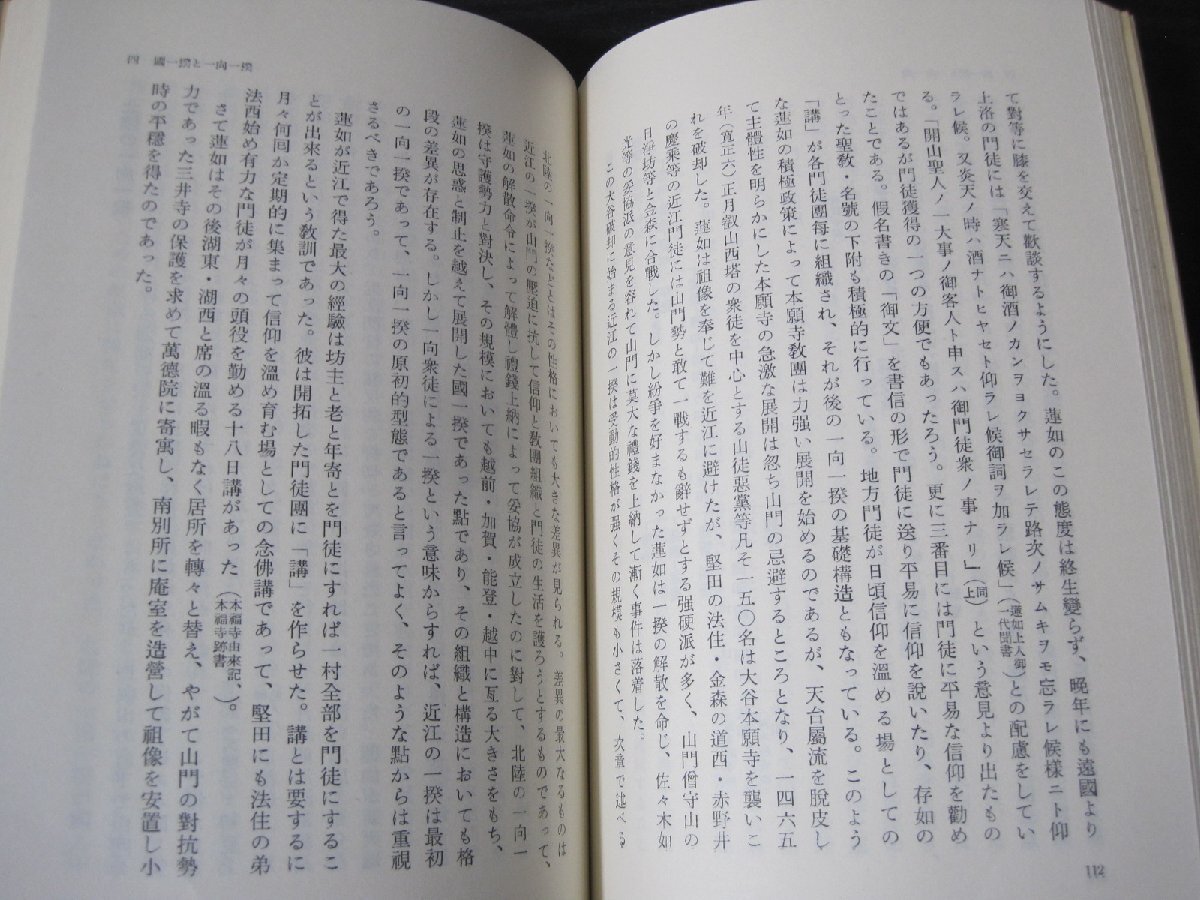 て對等に膝を交えて歡談するようにした。蓮如のこの態度は終生變らず、晩年にも遠國より
上洛の門徒には「寒天ニハ御酒ノカンヲヨクサセラレテ路次ノサムキヲモ忘ラレ候樣ニト仰
ラレ候。又炎天ノ時ハ酒ナトヒヤセト仰ラレ候御詞ヲ加ラレ候」（蓮如上人御一代聞書）との配慮をしてい
る。「開山聖人ノ一大事ノ御客人ト申スハ御門徒衆ノ事ナリ」（同上）という意見より出たもの
ではあるが門徒獲得の一つの方便でもあったろう。更に三番目には門徒に平易な信仰を勸め
たことである。假名書きの「御文」を書信の形で門徒に送り平易に信仰を說いたり、存如の
とった聖敎・名號の下附も積極的に行っている。地方門徒が日頃信仰を溫める場としての
「講」が各門徒團每に組織され、それが後の一向一揆の基礎構造ともなっている。このよう
な蓮如の積極政策によって本願寺敎團は力强い展開を始めるのであるが、天台屬流を脫皮し
て主體性を明らかにした本願寺の急激な展開は忽ち山門の忌避するところとなり、一四六五
年（寬正六）正月叡山西塔の衆徒を中心とする山徒惡黨等凡そ一五〇名は大谷本願寺を襲いこ
れを破却した。蓮如は祖像を奉じて難を近江に避けたが、堅田の法住・金森の道西・赤野井
の慶乘等の近江門徒には山門勢と敢て一戰するも辭せずとする强硬派が多く、山門僧守山の
日淨坊等と金森に合戰した。しかし紛爭を好まなかった蓮如は一揆の解散を命じ、佐々木如
光等の妥協派の意見を容れて山門に莫大な禮錢を上納して漸く事件は落着した。
この大谷破却に始まる近江の一揆は受動的性格が强くその規模も小さくて、次章で述べる
112
四 國一揆と一向一揆
北陸の一向一揆などとはその性格においても大きな差異が見られる。差異の最大なるものは
近江の一揆が山門の壓迫に抗して信仰と敎團組織と門徒の生活を護ろうとするものであって、
蓮如の解散命令によって解體し禮錢上納によって妥協が成立したのに對して、北陸の一向一
揆は守護勢力と對決し、その規模においても越前・加賀・能登・越中に亙る大きさをもち、
蓮如の思惑と制止を越えて展開した國一揆であった點であり、その組織と構造においても格
段の差異が存在する。しかし一向衆徒による一揆という意味からすれば、近江の一揆は最初
の一向一揆であって、一向一揆の原初的型態であると言ってよく、そのような點からは重視
さるべきであろう。
蓮如が近江で得た最大の經驗は坊主と老と年寄とを門徒にすれば一村全部を門徒にするこ
とが出來るという敎訓であった。彼は開拓した門徒團に「講」を作らせた。講とは要するに
月々何回か定期的に集まって信仰を溫め育む場としての念佛講であって、堅田にも法住の弟
法西始め有力な門徒が月々の頭役を勤める十八日講があった（本福寺由來記、本福寺跡書）。
さて蓮如はその後湖東・湖西と席の溫る暇もなく居所を轉々と替え、やがて山門の對抗勢
力であった三井寺の保護を求めて萬德院に寄寓し、南別所に庵室を造營して祖像を安置し小
時の平穩を得たのであった。